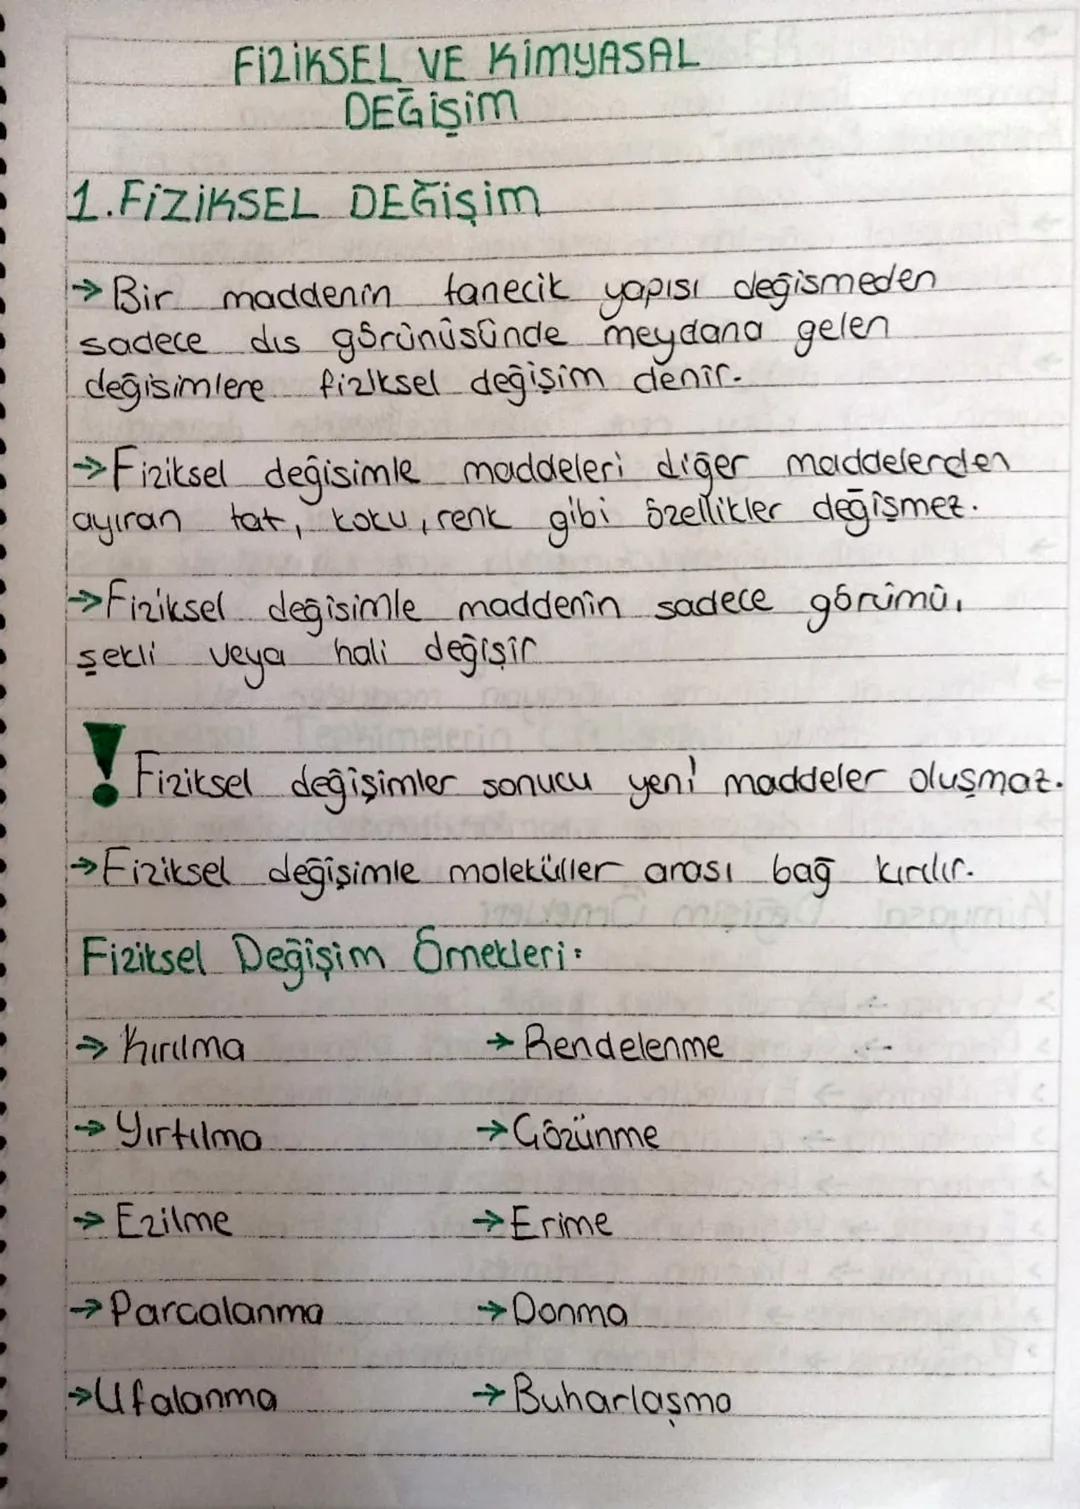 FİZİKSEL VE KİMYASAL
DEĞİŞİM
1.FİZİKSEL DEĞİŞİM
→Bir maddenin tanecik yapısı değismeden
sadece dıs görünüsünde meydana gelen
değisimlere fiziksel değişim denir.
→Fiziksel değisimle maddeleri diğer maddelerden
ayıran tat, koku, renk gibi özellikler değişmez.
→Fiziksel değisimle maddenin sadece görümü,
şekli veya hali değişir
! Fiziksel değişimler sonucu yeni maddeler oluşmaz.
→Fiziksel değişimle moleküller arası bağ kırılır.
Fiziksel Değişim Örnekleri:
→ Kırılma → Rendelenme
→ Yırtılma → Çözünme
→ Ezilme → Erime
→ Parcalanma → Donma
→ Ufalanma → Buharlaşma